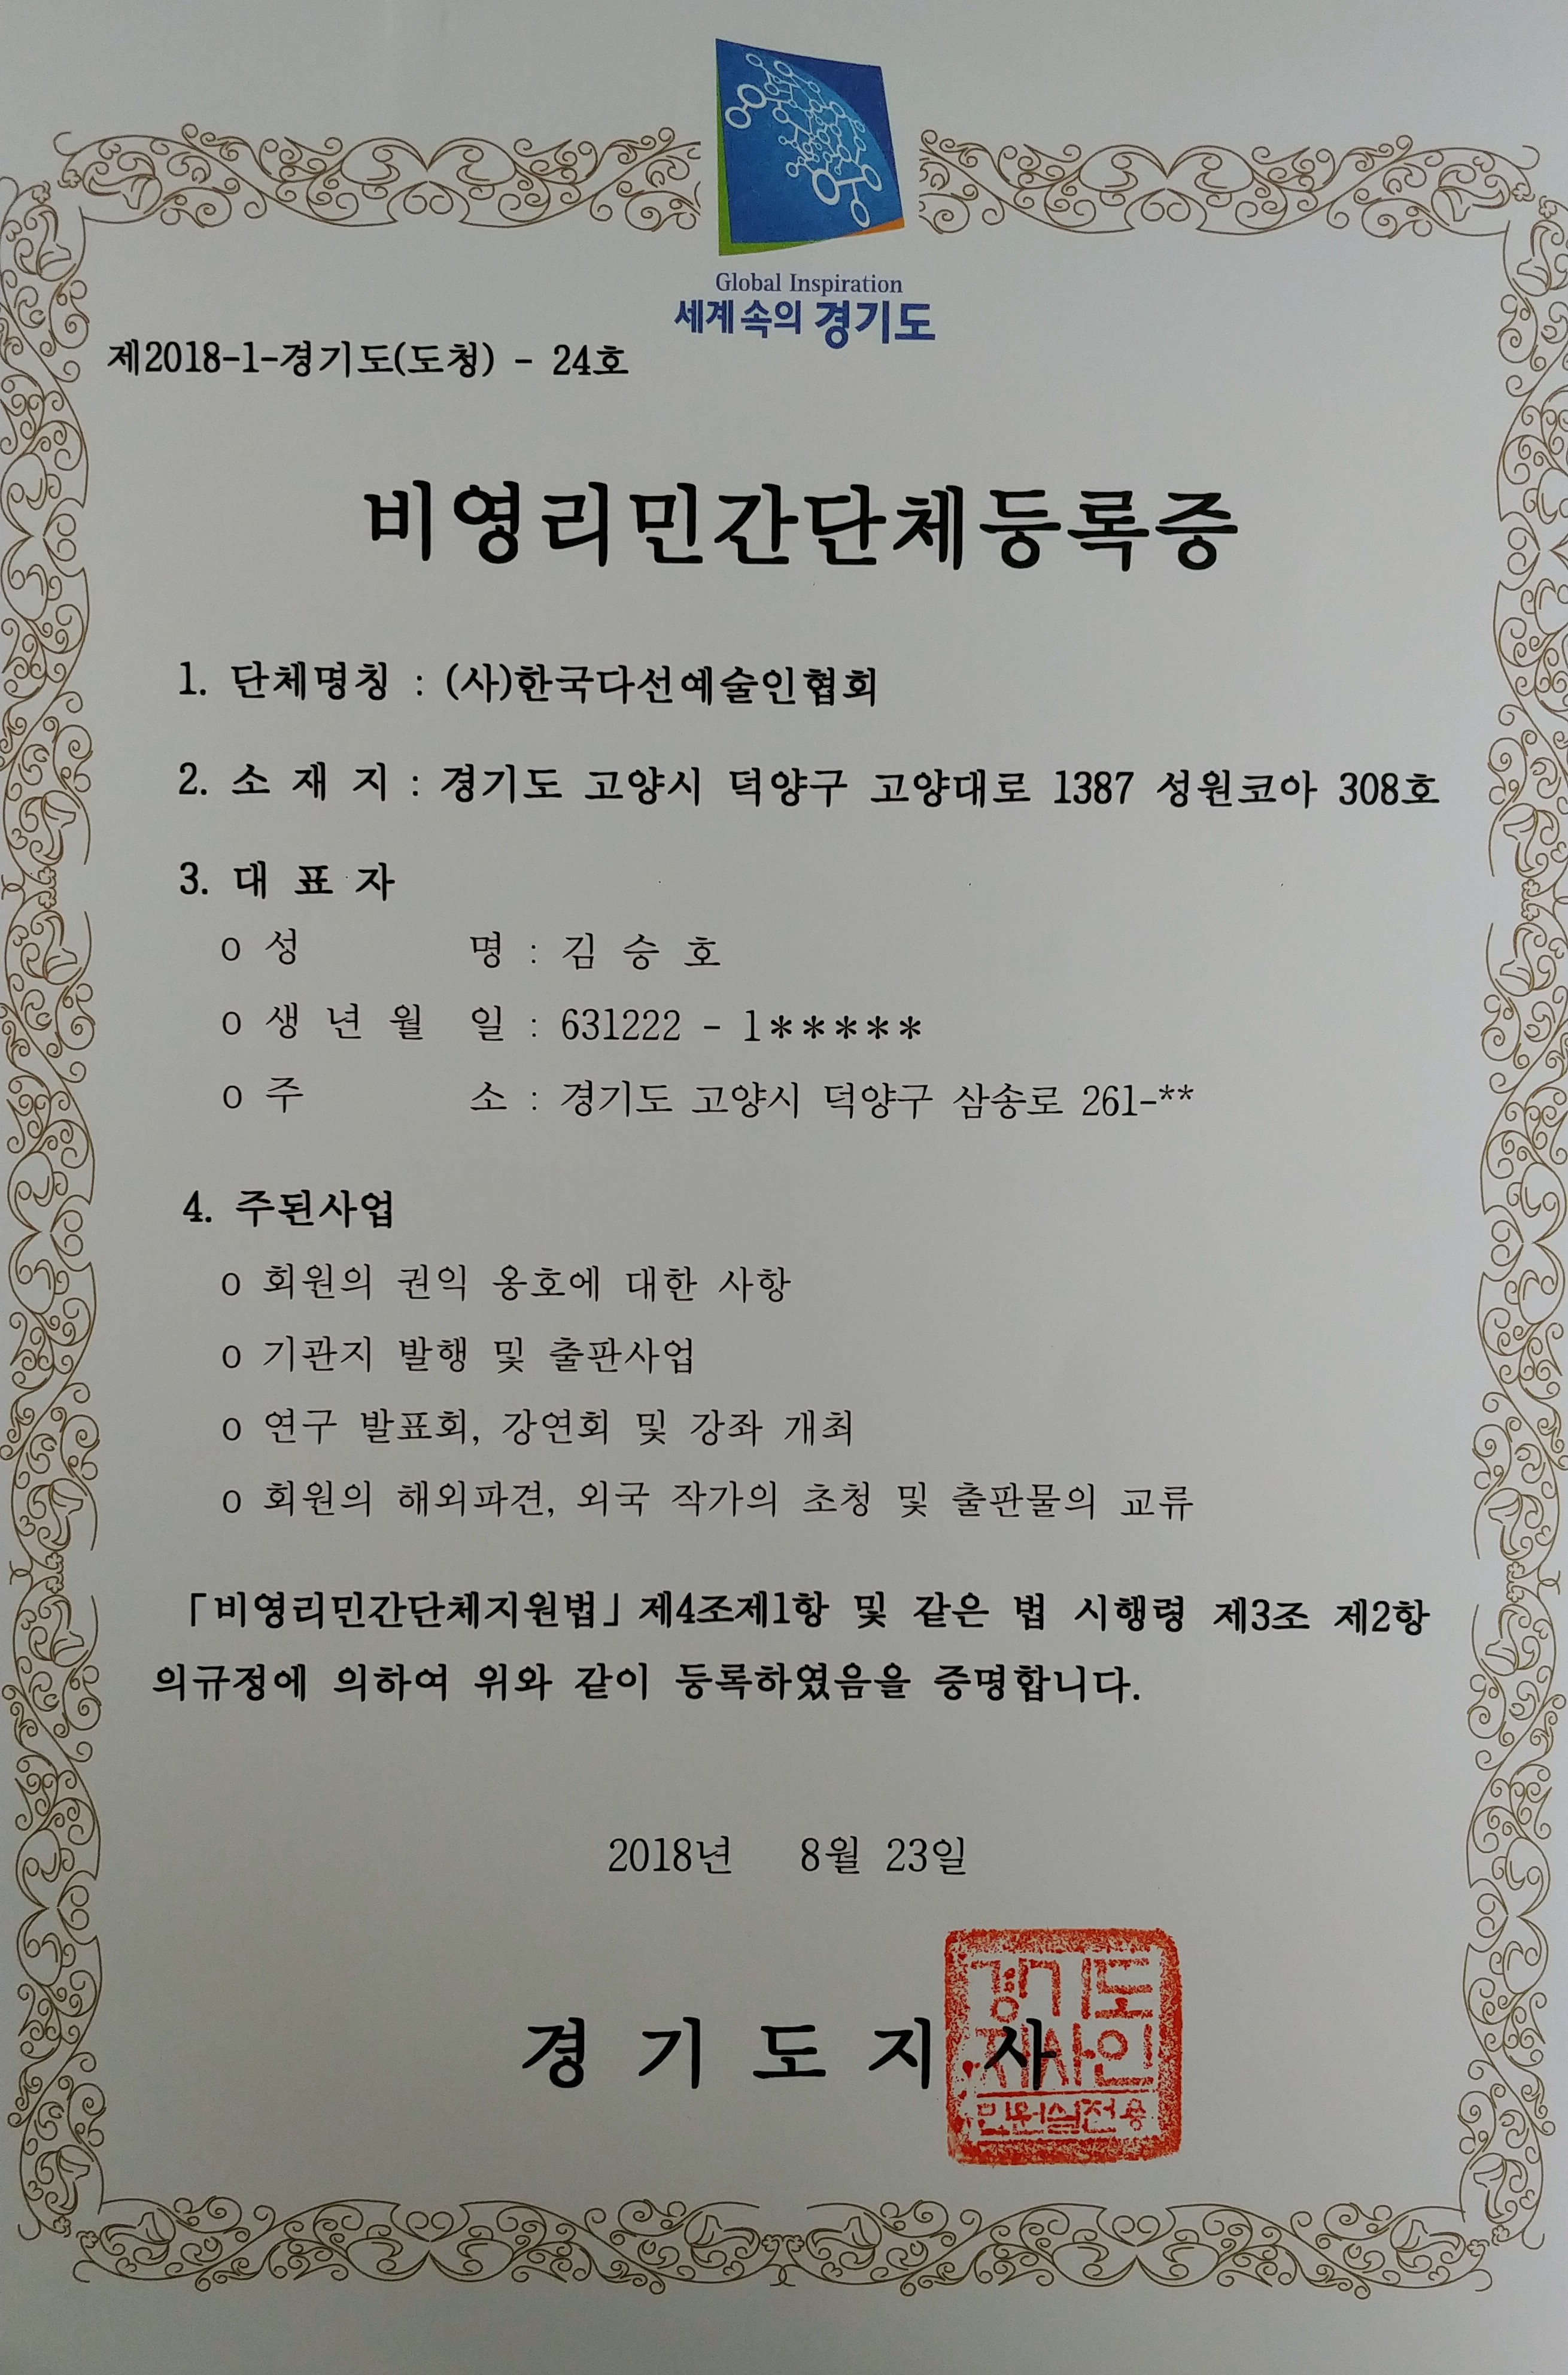 Global Inspiration
세계속의 경기도
제2018-1-경기도(도청) - 24호
비영리민간단체등록증
1. 단체명칭 : (사)한국다선예술인협회
2. 소 재 지 : 경기도 고양시 덕양구 고양대로 1387 성원코아 308호
3. 대 표 자
o 성 명 : 김 승 호
o 생 년 월 일 : 631222 - 1*****
o 주 소 : 경기도 고양시 덕양구 삼송로 261-**
4. 주된사업
o 회원의 권익 옹호에 대한 사항
o 기관지 발행 및 출판사업
o 연구 발표회, 강연회 및 강좌 개최
o 회원의 해외파견, 외국 작가의 초청 및 출판물의 교류
「비영리민간단체지원법」제4조제1항 및 같은 법 시행령 제3조 제2항
의규정에 의하여 위와 같이 등록하였음을 증명합니다.
2018년 8월 23일
경 기 도 지 사
경기도
지사인
민원실전용